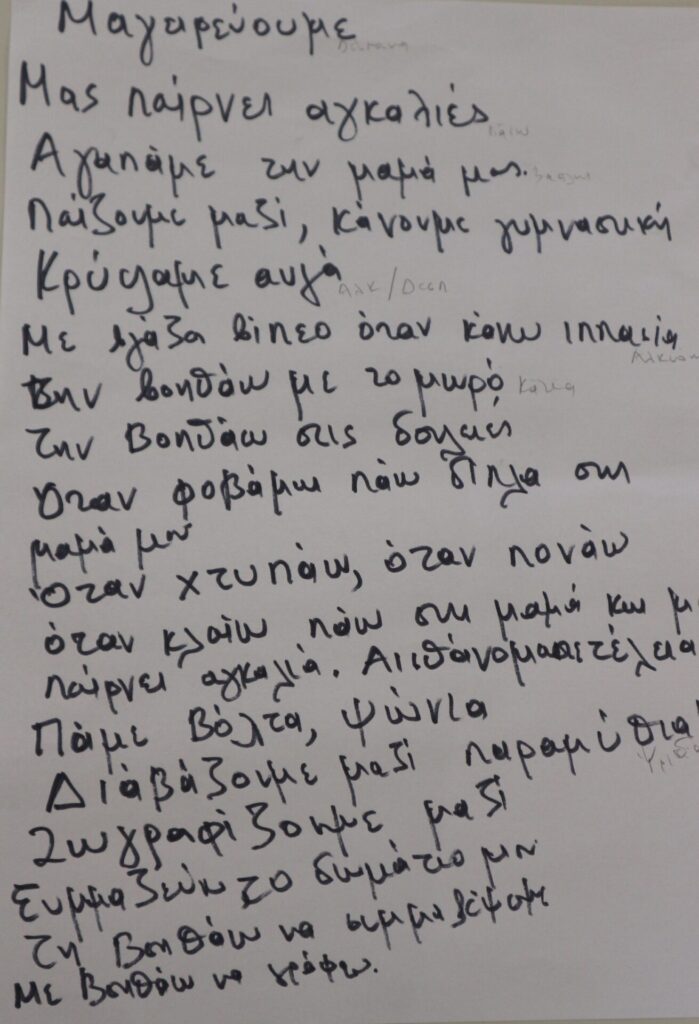 Μαγειρεύουμε
Μας παίρνει αγκαλιές
Αγαπάμε την μαμά μας.
Παίζουμε μαζί, κάνουμε γυμναστική
Κρύψαμε αυγά Αλκ/Δεσπ
Με βγάζει βίντεο όταν κάνω ιππασία
την βοηθάω με το μωρό Κάτια
την Βοηθάω στις δουλειές
Όταν φοβάμαι πάω δίπλα στη
μαμά μου
Όταν χτυπάω, όταν πονάω
όταν κλαίω πάω στη μαμά και με
παίρνει αγκαλιά. Αισθάνομαι τέλεια
Πάμε Βόλτα, ψώνια
Διαβάζουμε μαζί παραμύθια
Ζωγραφίζουμε μαζί
το δωμάτιο μου
τη Βοηθάω να
Με Βοηθάω να γράφω.